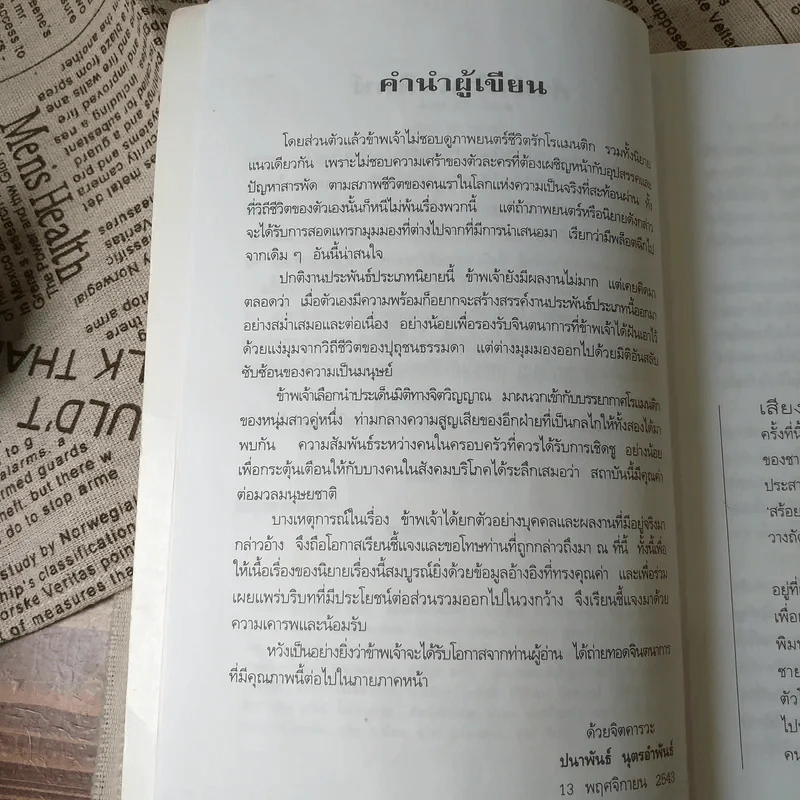 คำนำผู้เขียน
โดยส่วนตัวแล้วข้าพเจ้าไม่ชอบดูภาพยนตร์ชีวิตรักโรแมนติก รวมทั้งนิยาย
แนวเดียวกัน เพราะไม่ชอบความเศร้าของตัวละครที่ต้องเผชิญหน้ากับอุปสรรคและ
ปัญหาสารพัด ตามสภาพชีวิตของคนเราในโลกแห่งความเป็นจริงที่สะท้อนผ่าน ทั้ง
ที่วิถีชีวิตของตัวเองนั้นก็หนีไม่พ้นเรื่องพวกนี้ แต่ถ้าภาพยนตร์หรือนิยายดังกล่าว
จะได้รับการสอดแทรกมุมมองที่ต่างไปจากที่มีการนำเสนอมา เรียกว่ามีพล็อตฉีกไป
จากเดิม ๆ อันนี้น่าสนใจ
ปกติงานประพันธ์ประเภทนิยายนี้ ข้าพเจ้ายังมีผลงานไม่มาก แต่เคยคิดมา
ตลอดว่า เมื่อตัวเองมีความพร้อมก็อยากจะสร้างสรรค์งานประพันธ์ประเภทนี้ออกมา
อย่างสม่ำเสมอและต่อเนื่อง อย่างน้อยเพื่อรองรับจินตนาการที่ข้าพเจ้าได้ฝันเอาไว้
ด้วยแง่มุมจากวิถีชีวิตของปุถุชนธรรมดา แต่ต่างมุมมองออกไปด้วยมิติอันสลับ
ซับซ้อนของความเป็นมนุษย์
ข้าพเจ้าเลือกนำประเด็นมิติทางจิตวิญญาณ มาผนวกเข้ากับบรรยากาศโรแมนติก
ของหนุ่มสาวคู่หนึ่ง ท่ามกลางความสูญเสียของอีกฝ่ายที่เป็นกลไกให้ทั้งสองได้มา
พบกัน ความสัมพันธ์ระหว่างคนในครอบครัวที่ควรได้รับการเชิดชู อย่างน้อย
เพื่อกระตุ้นเตือนให้กับบางคนในสังคมบริโภคได้ระลึกเสมอว่า สถาบันนี้มีคุณค่า
ต่อมวลมนุษยชาติ
บางเหตุการณ์ในเรื่อง ข้าพเจ้าได้ยกตัวอย่างบุคคลและผลงานที่มีอยู่จริงมา
กล่าวอ้าง จึงถือโอกาสเรียนชี้แจงและขอโทษท่านที่ถูกกล่าวถึงมา ณ ที่นี้ ทั้งนี้เพื่อ
ให้เนื้อเรื่องของนิยายเรื่องนี้สมบูรณ์ยิ่งด้วยข้อมูลอ้างอิงที่ทรงคุณค่า และเพื่อร่วม
เผยแพร่บริบทที่มีประโยชน์ต่อส่วนรวมออกไปในวงกว้าง จึงเรียนชี้แจงมาด้วย
ความเคารพและน้อมรับ
หวังเป็นอย่างยิ่งว่าข้าพเจ้าจะได้รับโอกาสจากท่านผู้อ่าน ได้ถ่ายทอดจินตนาการ
ที่มีคุณภาพนี้ต่อไปในภายภาคหน้า
ด้วยจิตคารวะ
ปนาพันธ์ นุตรอำพันธ์
13 พฤศจิกายน 2543
เสียง
ครั้งที่นี้
ของชา
ประสา
'สร้อย
วางถัด
อยู่ที่
เพื่อ
พิมพ์
ชาย
ตัว
ไป
คน
Men's Health